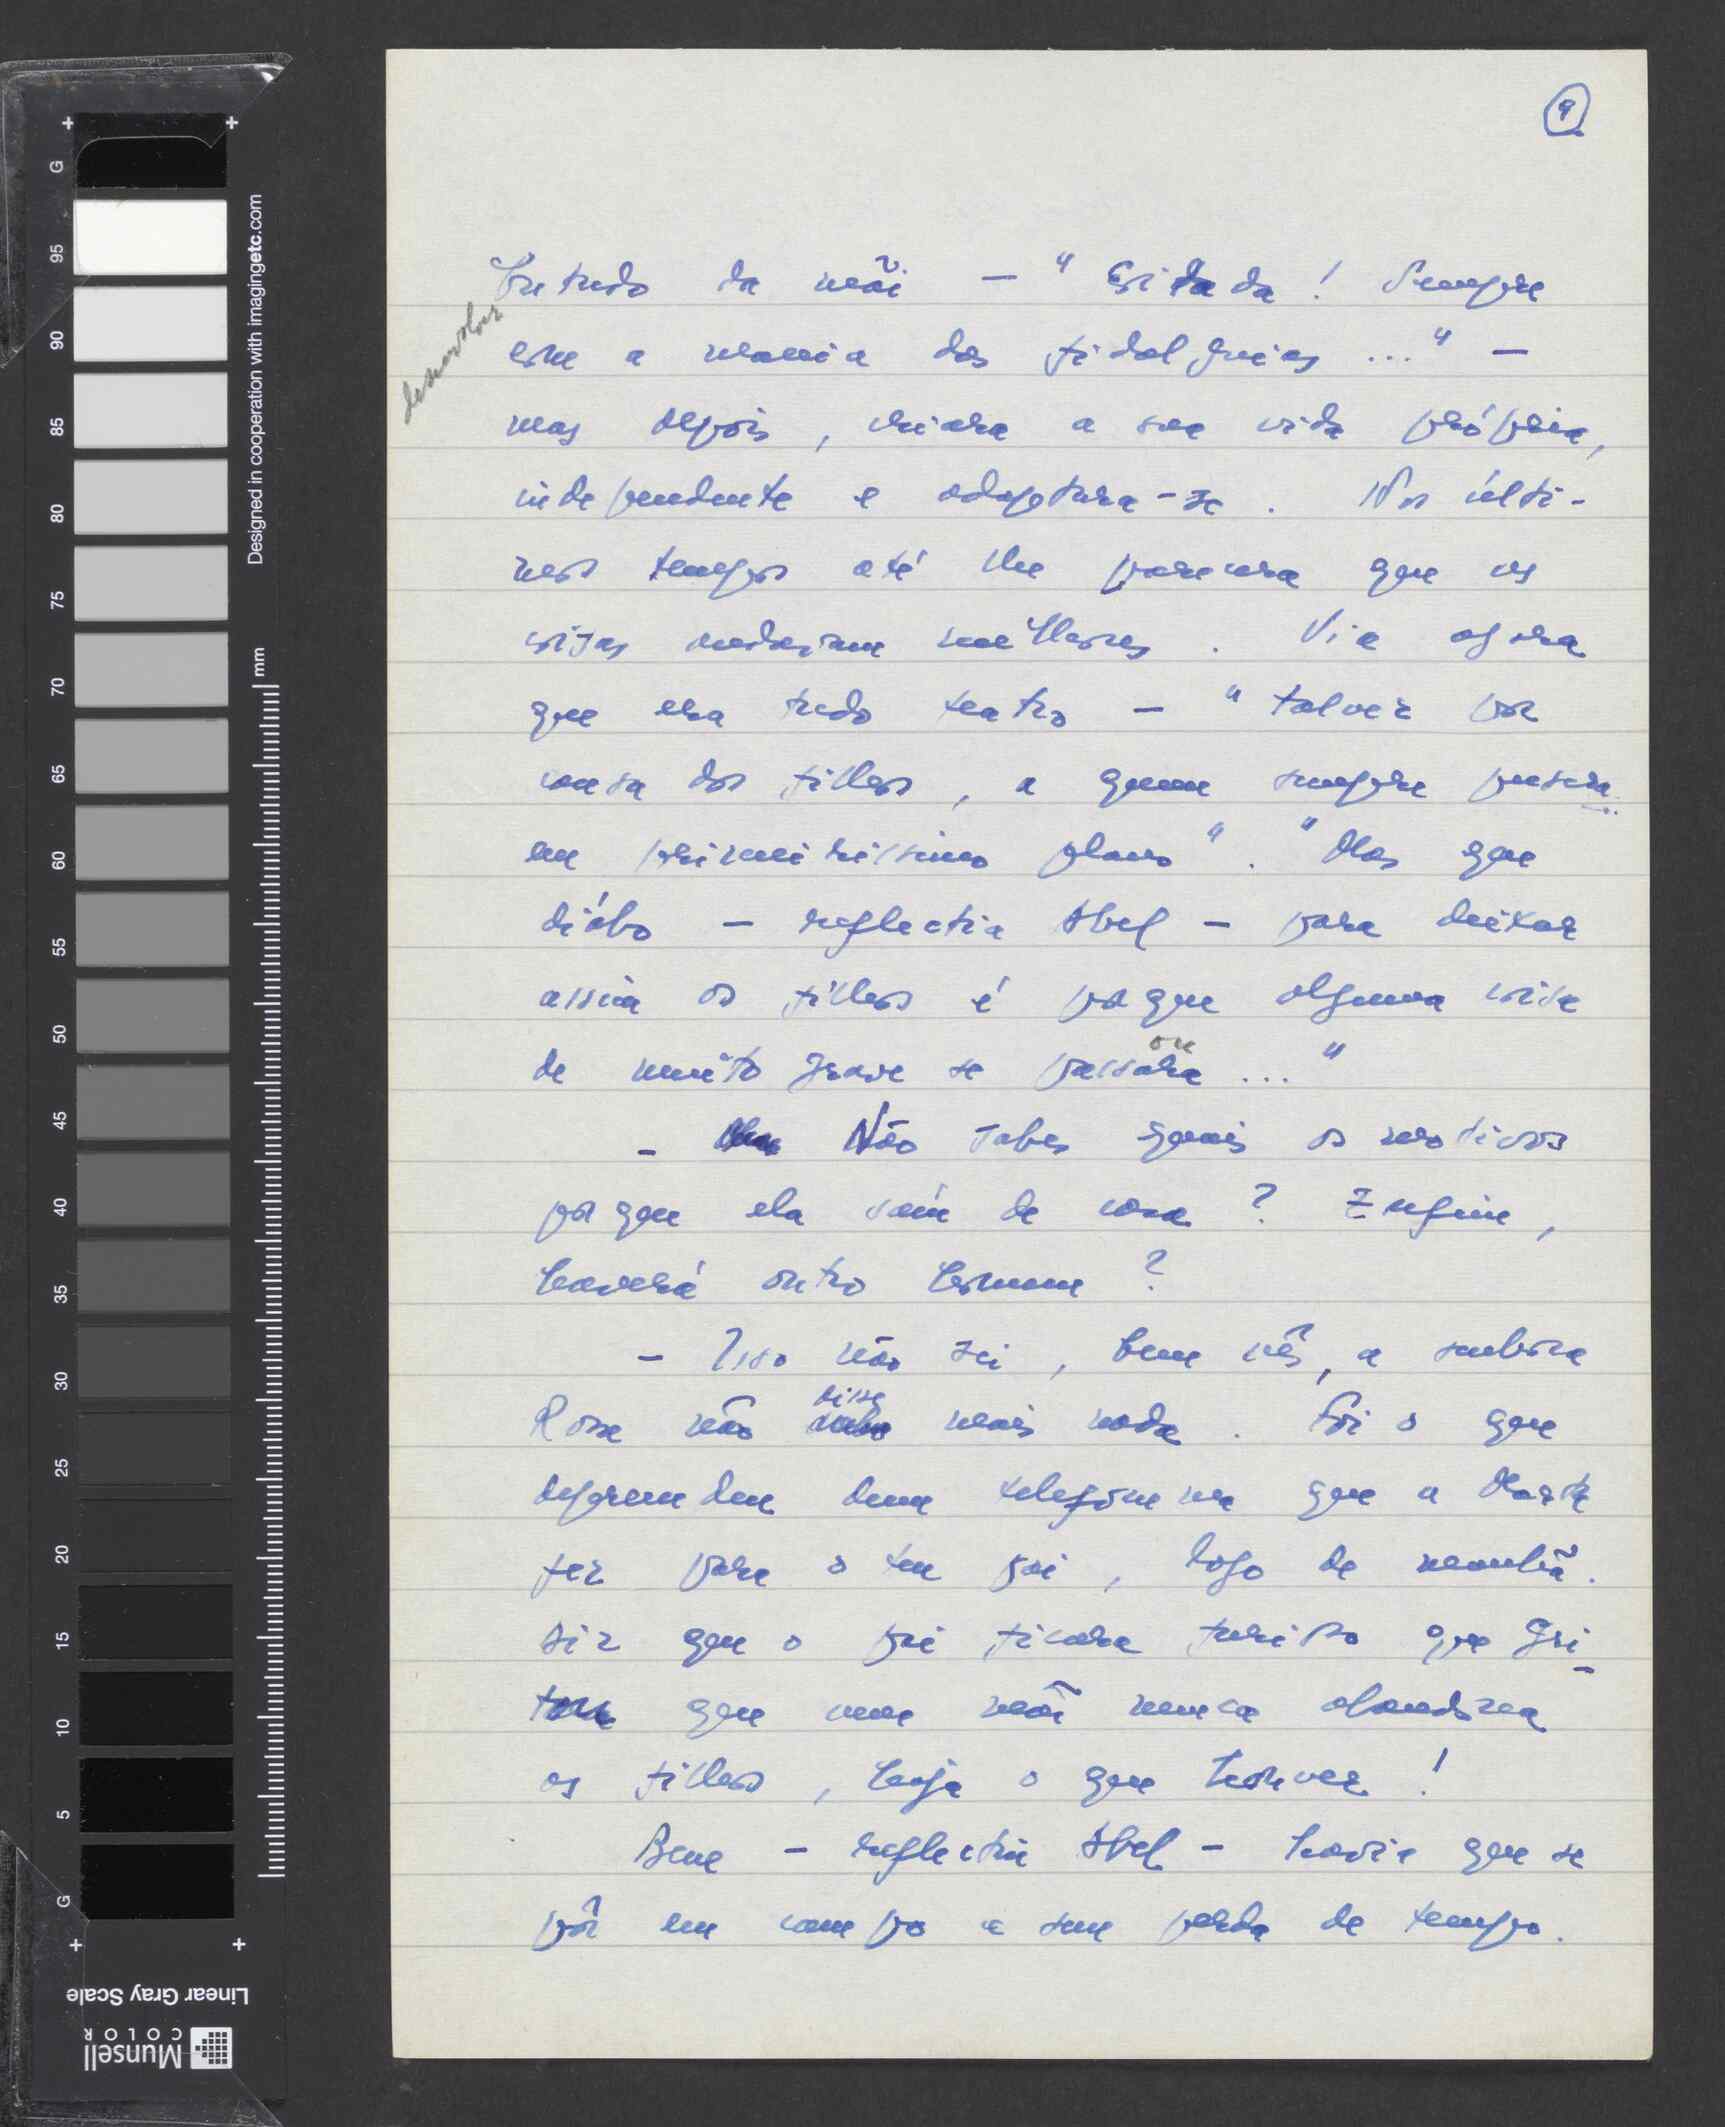 9
Sobretudo da mãi — "Coitada! Sempre
com a mania das fidalguias ..." —
desenvolver
mas depois, criara a sua vida própria,
independente e adaptara-se. Nos últi-
mos tempos até lhe parecera que as
coisas andavam melhores. Via agora
que era tudo teatro — "talvez por
causa dos filhos, a quem sempre pusera
em primeiríssimo plano". "Mas que
diabo — reflectia Abel — para deixar
assim os filhos é porque alguma coisa
de muito grave se passara ..."
ou
— Não sabes quais os motivos
porque ela saíu de casa? Enfim,
haverá outro homem?
— Isso não sei, bem vês, a senhora
Rosa não disse mais nada. Foi o que
depreendeu dum telefonema que a Marta
fez para o teu pai, logo de manhã.
Diz que o pai ficara furioso que gri-
tou que uma mãi nunca abandona
os filhos, haja o que houver!
Bem — reflectia Abel — havia que se
pôr em campo e sem perda de tempo.
G 95 90 85 80 75 70 65 60 55 50 45 40 35 30 25 20 15 10 5 G
Designed in cooperation with imagingetc.com
mm
Linear Gray Scale
Munsell
COLOR